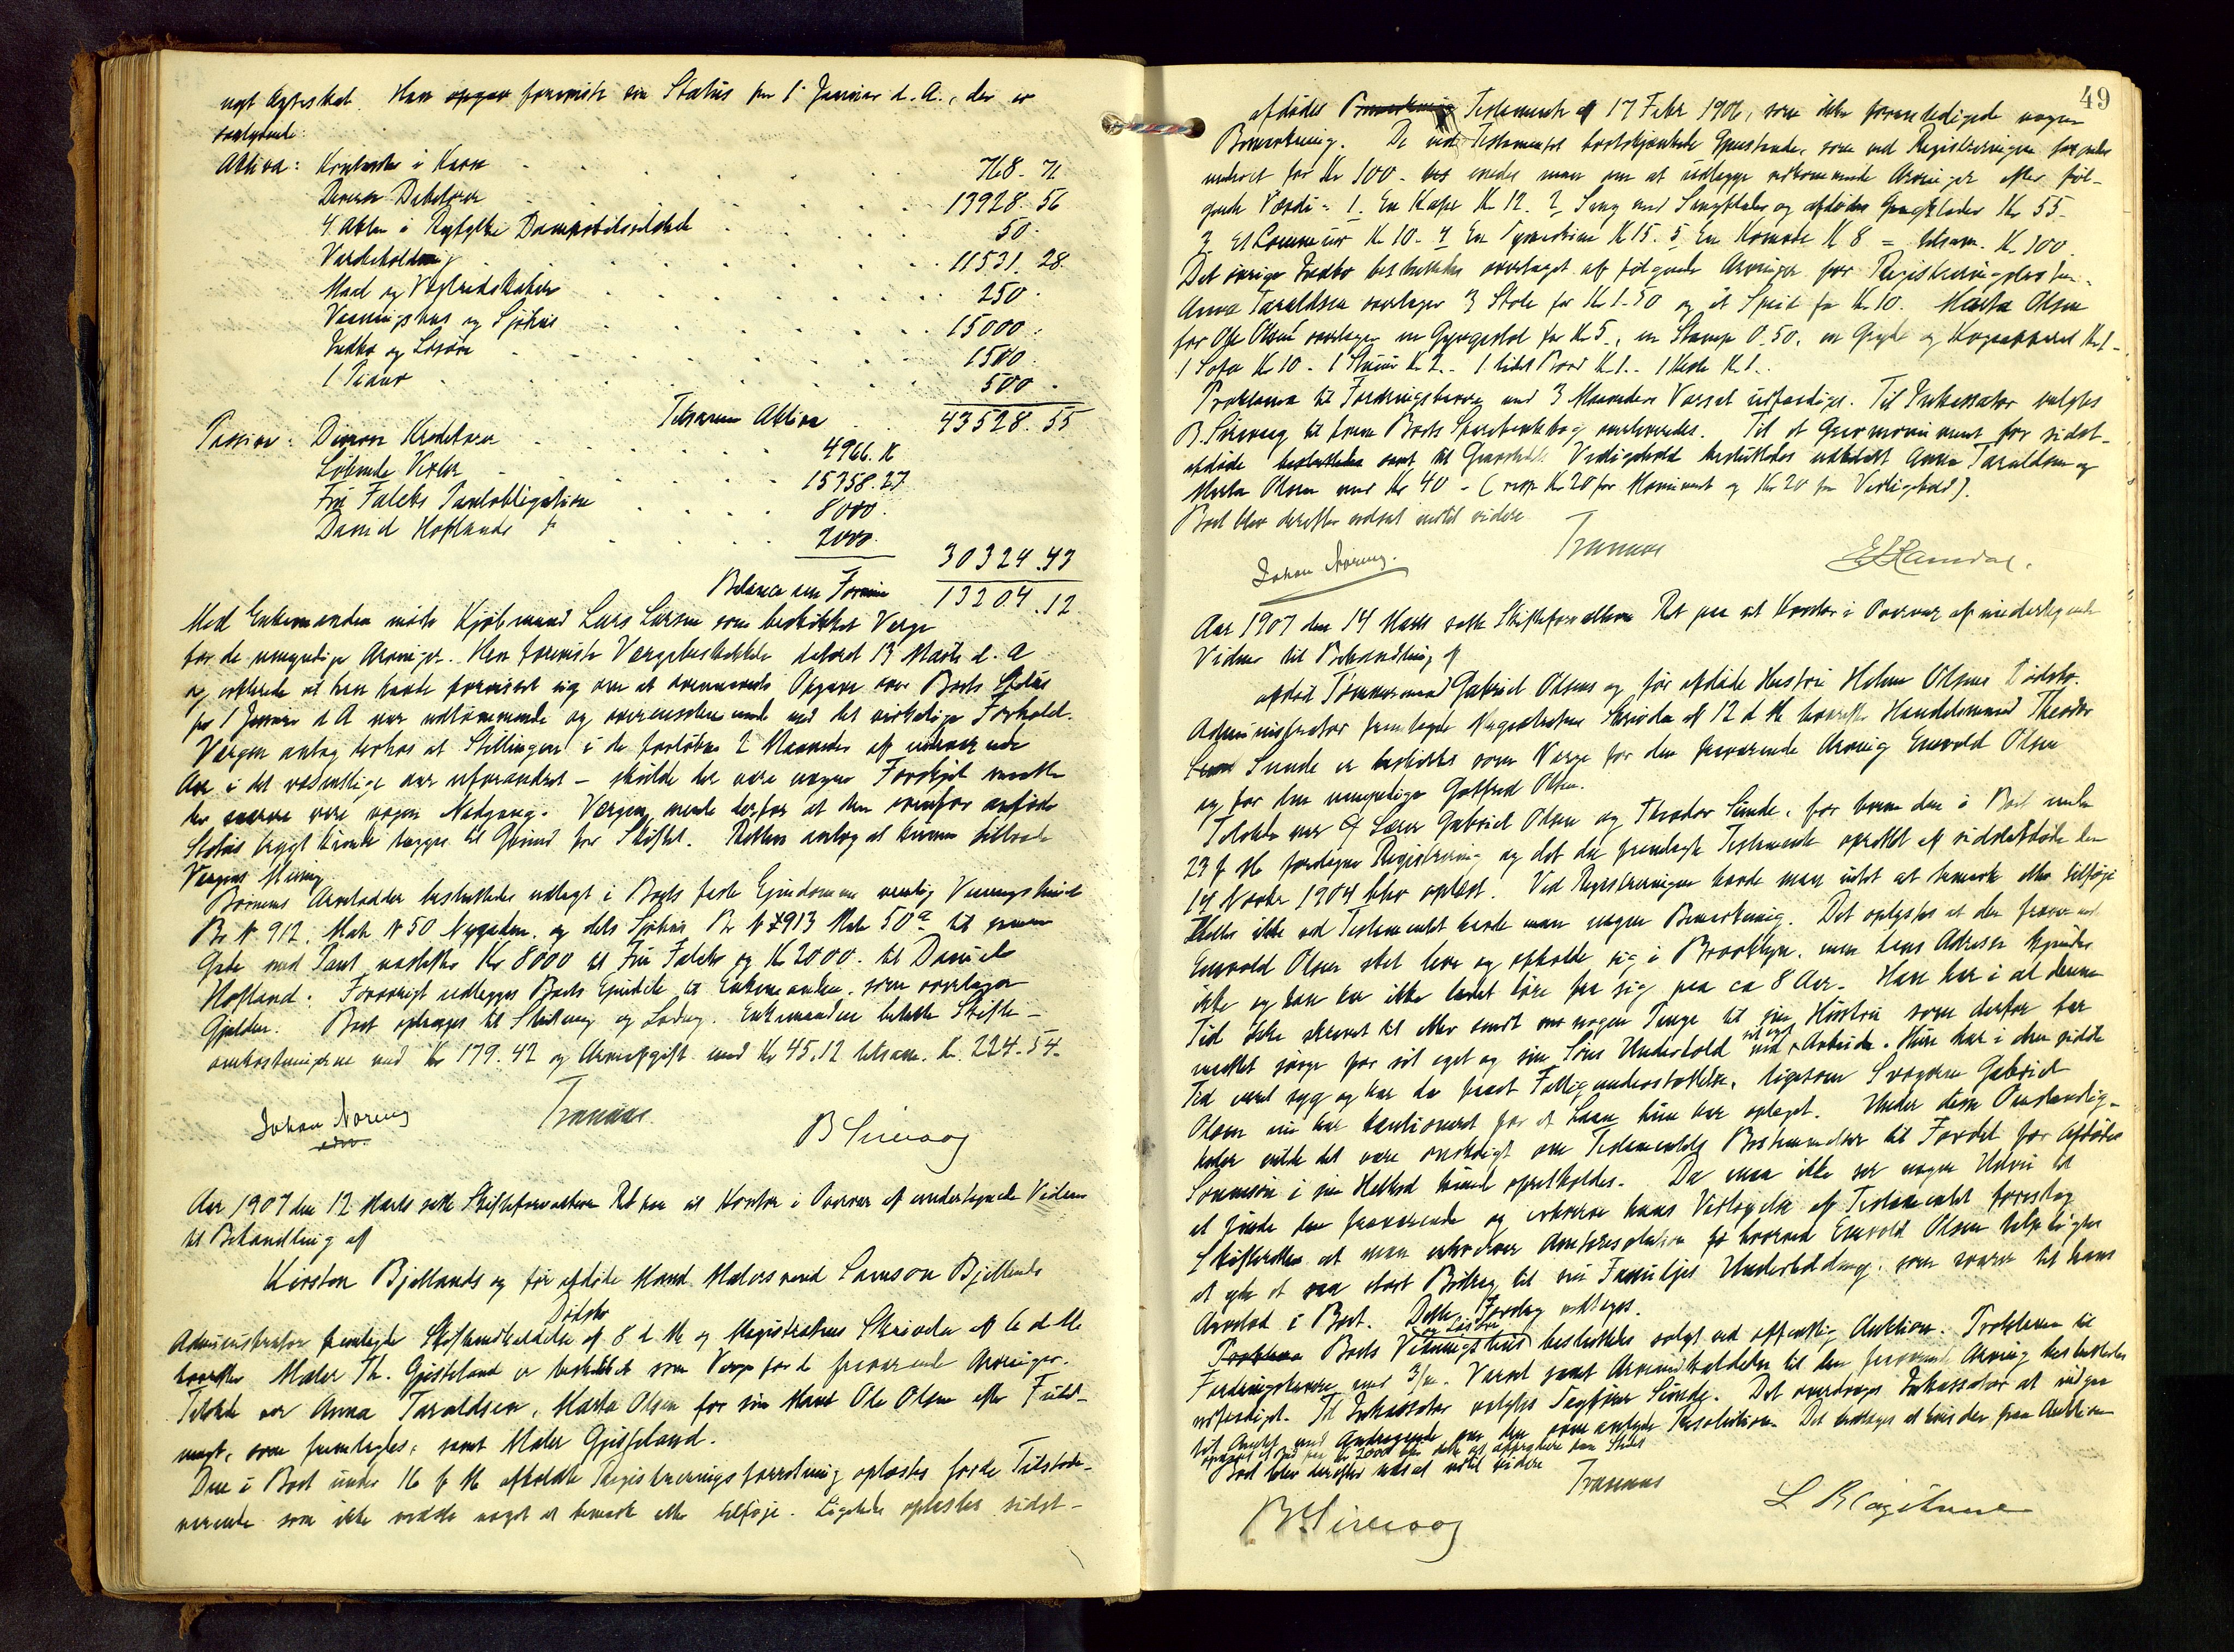 Han opgav foreviste sin Status pr 1 Januar d. A., der er
saalydende:
Aktiva: Kontanter i Kasse 768.71
Diverse Debitorer 13928.56
4 Aktier i Dampskibsselskab 50.
Varebeholdning 11531.28.
250.
Vaaningshus og Sjøhus 15000.
Indbo og Løsøre 1500.
1 Piano 500.
Tilsammen Aktiva 43528.55
Passiva: Diverse Kreditorer 4966.
Løbende Vexler 15358.27
Fru Falcks Pantobligation 8000.
David Hoflands 2000.
30324.43
Balance 13204.12.
Med Enkemanden mødte Kjøbmand Lars Larsen som beskikket Verge
for de umyndige Arvinger. Han foreviste Vergebeskikkelse dateret 13 Marts d. A
og erklærede at han havde forvisset sig om at ovennævnte Opgave over Boets Status
pr 1 Januar d A var udtømmende og overensstemmende med det virkelige Forhold.
Vergen antog derhos at Stillingen i de forløbne 2 Maaneder af indeværende
Aar i det væsentlige var uforandret – skulde der være nogen Forskjel maatte
det være nogen Nedgang. Vergen mente derfor at den ovenfor anførte
Status trygt kunde lægges til Grund for Skiftet. Retten antog at kunne tiltræde
Vergens Mening
Børnens Arvelodder besluttedes udlagt i Boets faste Ejendomme nemlig Vaaningshuset
Br N 912. Matr N 50 Nygaden. og dets Sjøhus Br N 913 Matr 50a til samme
Gade med Pant næstefter Kr 8000 til Fru Falck og Kr 2000. til David
Hofland. Forøvrigt udlægges Boets Ejendele til Enkemanden. som overtager
Gjælden. Boet optages til Slutning og Lodning. Enkemanden betalte Skifte-
omkostningerne med Kr 179.42 og Arveafgift med Kr 45.12 tilsam. Kr. 224.54.
Johan Noreng Tranaas B Sirevaag
Aar 1907 den 12 Marts satte Skifteforvalteren Ret paa sit Kontor i Overvær af undertegnede Vidner
til Behandling af
Kirsten Bjellands og før afdøde Mand Malersvend Samson Bjellands
Dødsbo
Administrator fremlagde Skifteanmeldelse af 8 d M og Magistratens Skrivelse af 6 d M
hvorefter Maler Th. Gjesteland er beskikket som Verge for de fraværende Arvinger.
Tilstede var Anna Taraldsen, Marta Olsen for sin Mand Ole Olsen efter Fuld-
magt, som fremlagdes, samt Maler Gjesteland.
Den i Boet under 16 f M afholdte Registreringsforretning oplæstes for de Tilstede-
værende som ikke vidste noget at bemærke eller tilføje. Ligeledes oplæstes sidst-
49
afdødes Testamente af 17 Febr 1906, som ikke foranledigede nogen
Bemærkning. De ved Testamentet bortskjænkede Gjenstande, som ved Registreringen
vurderet for Kr 100. enedes man om at udlægge vedkommende Arvinger efter føl-
gende Værdi: 1. En Kaape Kr 12. 2 Seng med Sengklæder og afdødes Gangklæder Kr 55.
3 Et Kr 10. 4 En Symaskine Kr 15. 5 En Komode Kr 8 = tilsam. Kr 100.
Det øvrige Indbo besluttedes overtaget af følgende Arvinger for Registreringstaxten.
Anna Taraldsen overtager 3 Stole for Kr 1.50 og et Speil for Kr 10. Marta Olsen
for Ole Olsen overtager en Gyngestol for Kr 5., en Stamp 0.50. en Gryde og
1 Sofa Kr 10. 1 Kr 2. 1 lidet Bord Kr 1. 1 Kiste Kr 1.
Proklama til Fordringshavere med 3 Maaneders Varsel udfærdiges. Til Inkassator valgtes
B. Sirevaag til hvem Boets Sparebankbog overleveredes. Til et Gravmonument for sidst-
afdøde samt til Gravstedets Vedligehold besluttedes udbetalt Anna Taraldsen og
Marta Olsen med Kr 40 – (resp. Kr 20 for Monument og Kr 20 for Vedligehold).
Boet blev derefter udsat indtil videre
Johan Noreng. Tranaas
Aar 1907 den 14 Marts satte Skifteforvalteren Ret paa sit Kontor i Overvær af undertegnede
Vidner til Behandling af
afdød Tømmermand Gabriel Olsens og før afdøde Hustru Helene Olsens Dødsbo.
Administrator fremlagde Magistratens Skrivelse af 12 d M hvorefter Handelsmand Theodor
Sunde er beskikket som Verge for den fraværende Arving Enevold Olsen
og for den umyndige Gotfred Olsen.
Tilstede var Lærer Gabriel Olsen og Theodor Sunde, for hvem den i Boet under
23 f M foretagne Registrering og det der fremlagte Testamente oprettet af sidstafdøde den
14 Novbr 1904 blev oplæst. Ved Registreringen havde man intet at bemærke eller tilføje
Heller ikke ved Testamentet havde man nogen Bemærkning. Det oplystes at den fraværende
Enevold Olsen skal leve og opholde sig i Brooklyn. men hans Adresse kjendes
ikke og han har ikke ladet høre fra sig paa ca 8 Aar. Han har i al denne
Tid ikke skrevet til eller sendt nogen Penge til sin Hustru som derfor har
maattet sørge for sit eget og sin Søns Underhold ved sit eget Arbeide. Hun har i den sidste
Tid været syg og har da faaet Fattigunderstøttelse, ligesom Svogeren Gabriel
Olsen nu har kautioneret for et Laan hun har optaget. Under disse Omstændig-
heder vilde det være ønskeligt om Testamentets Bestemmelser til Fordel for Afdødes
Sønnesøn i sin Helhed kunde opretholdes. Da man ikke ser nogen Udvei til
at finde den fraværende og erhverve hans Vedtagelse af Testamentet foreslog
Skifteretten at man erhverver Amtsresolution for hvorved Enevold Olsen tilpligtes
at yde et saa stort Bidrag til sin Families Underholdning, som svarer til hans
Arvelod i Boet. Dette Forslag vedtoges.
Boets Vaaningshus og Løsøre besluttedes solgt ved offentlig Auktion. Proklama til
Fordringshavere med 3/m. Varsel samt Arveindkaldelse til den fraværende Arving besluttedes
udfærdiget. Til Inkassator valgtes Sagfører Sunde. Det overdroges Inkassator at indgaa
til Amtet med Andragende om den ovenomtalte Resolution. Det vedtoges at hvis der paa Auktion
Boet blev derefter udsat indtil videre
Tranaas
B Sirevaag